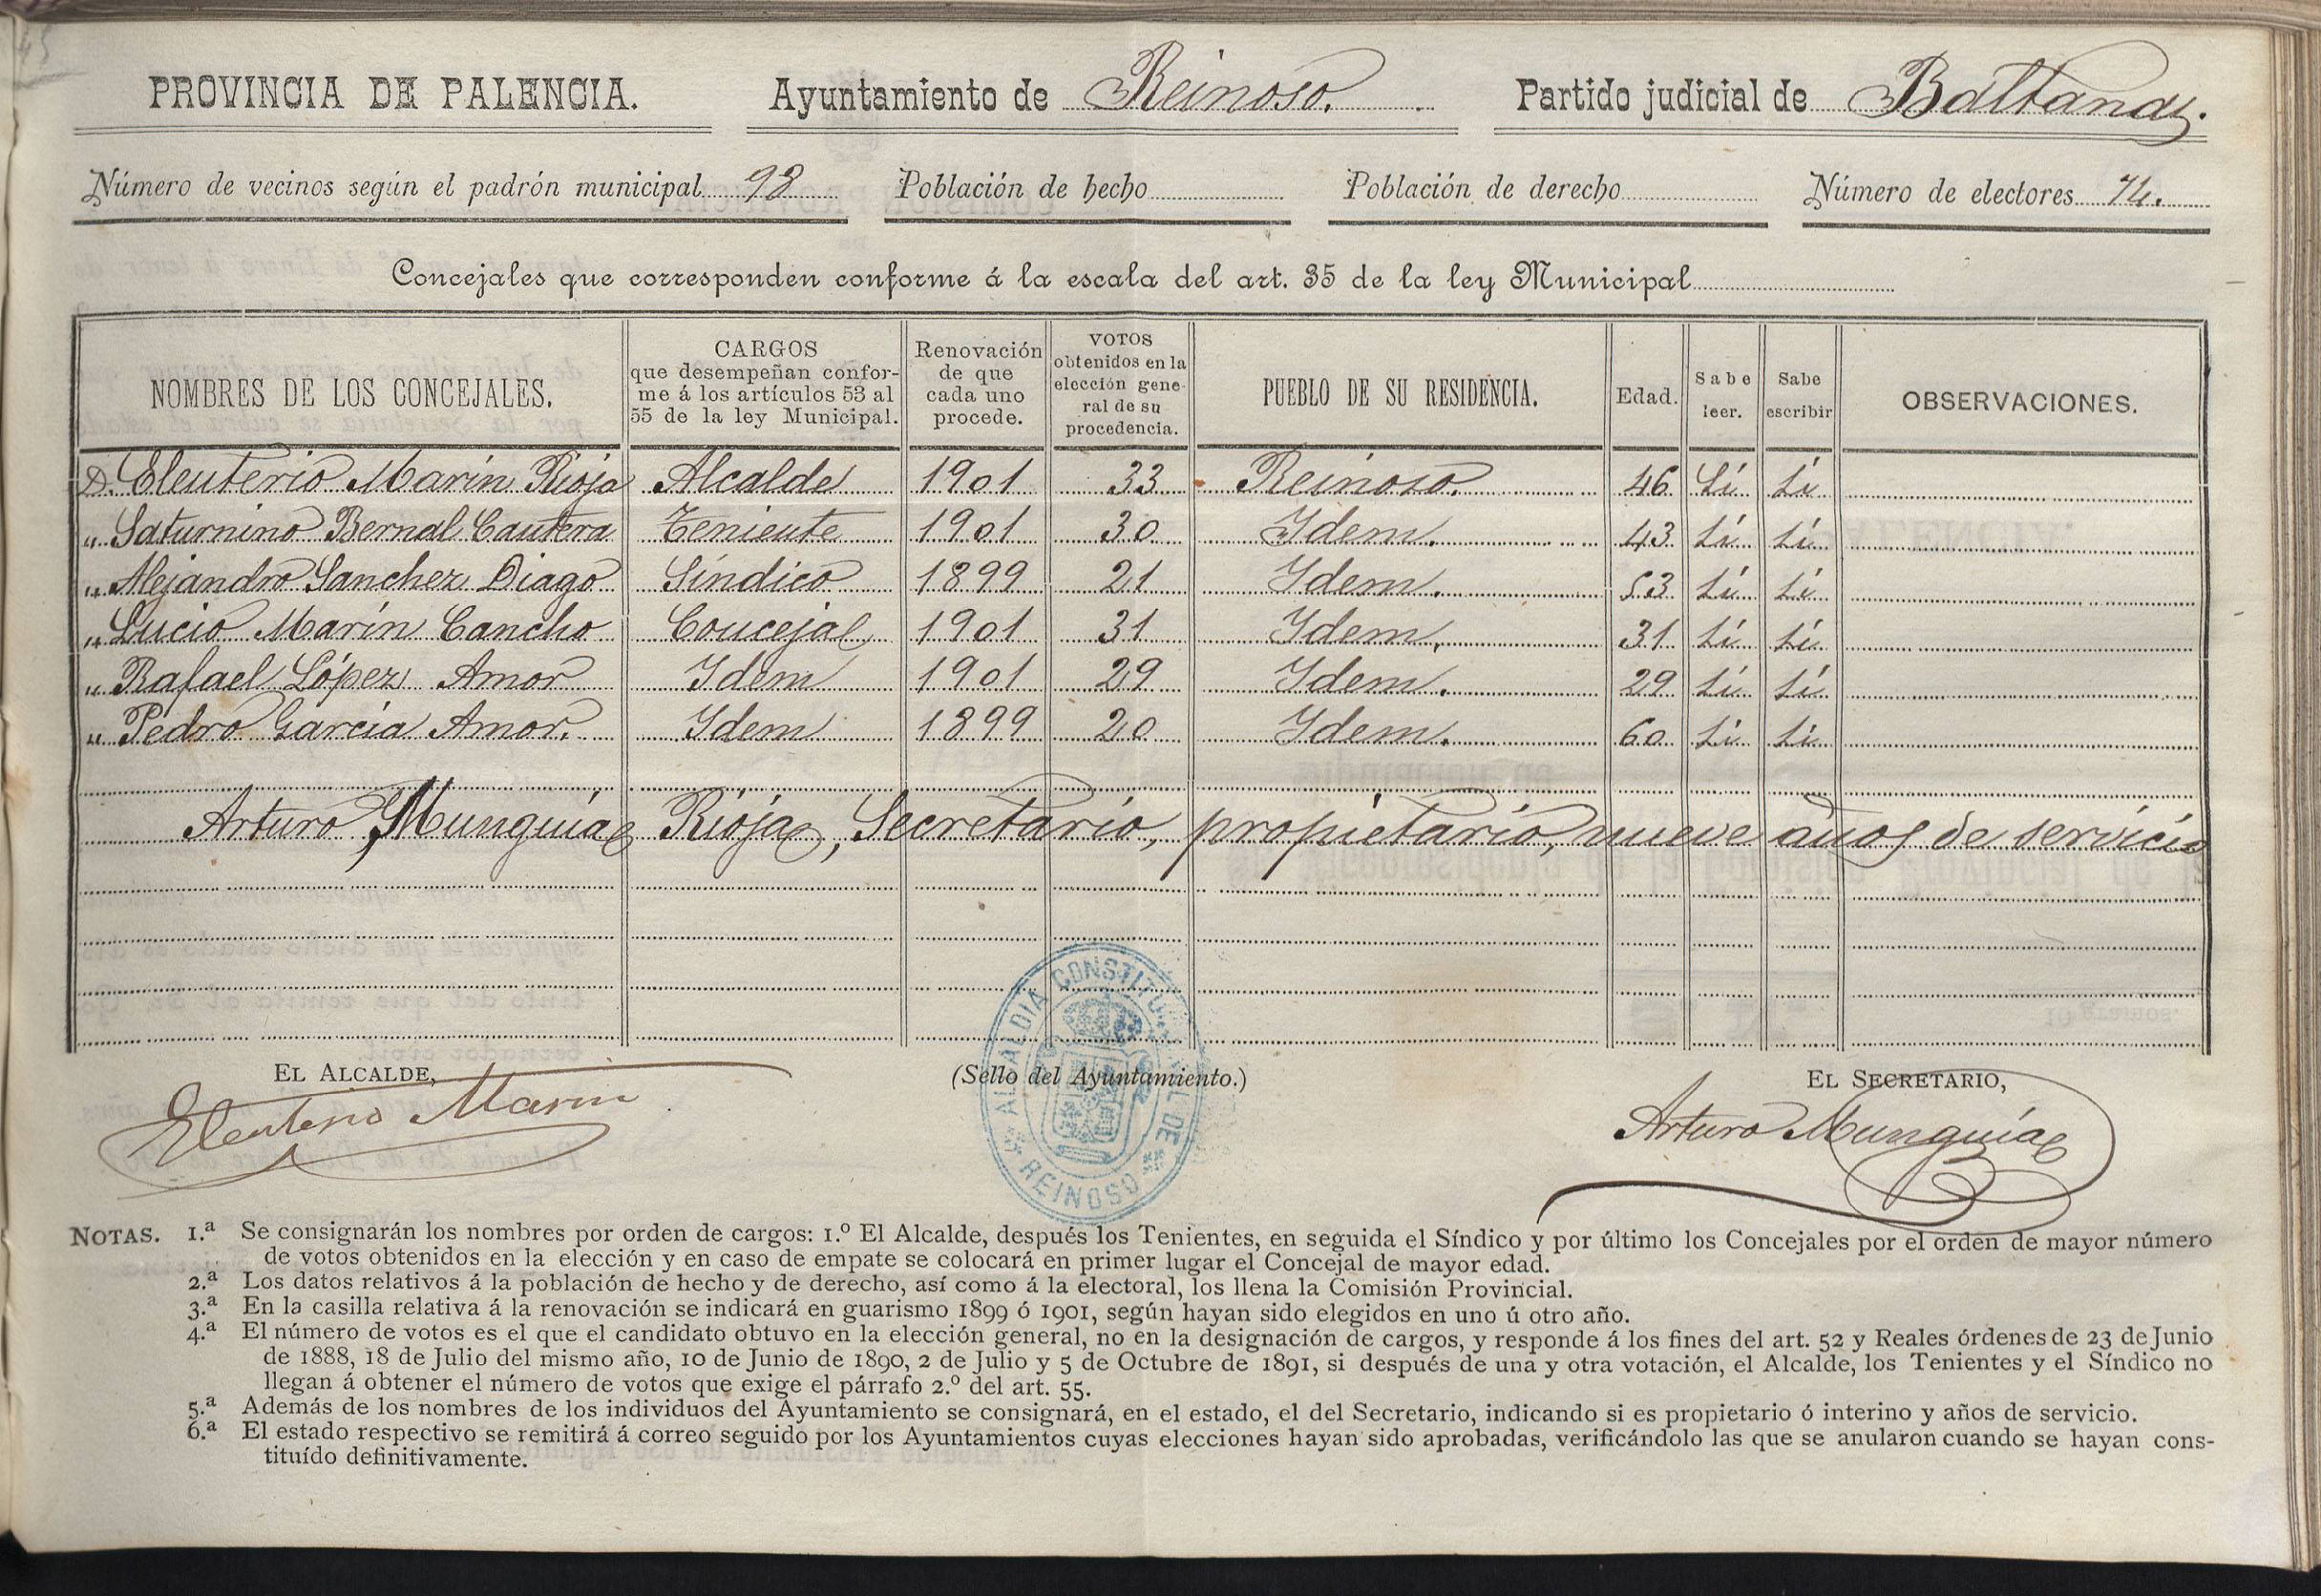 PROVINCIA DE PALENCIA. Ayuntamiento de Reinoso. Partido judicial de Baltanas.
Número de vecinos según el padrón municipal 98 Población de hecho Población de derecho Número de electores 74.
Concejales que corresponden conforme á la escala del art. 35 de la ley Municipal
NOMBRES DE LOS CONCEJALES. CARGOS que desempeñan conforme á los artículos 53 al 55 de la ley Municipal. Renovación de que cada uno procede. VOTOS obtenidos en la elección general de su procedencia. PUEBLO DE SU RESIDENCIA. Edad. Sabe leer. Sabe escribir OBSERVACIONES.
D. Eleuterio Marín Rioja Alcalde 1901 33 Reinoso. 46 Sí Sí
" Saturnino Bernal Cantera Teniente 1901 30 Idem. 43 Sí Sí
" Alejandro Sanchez Diago Síndico 1899 21 Idem. 53 Sí Sí
" Lucio Marín Cancho Concejal 1901 31 Idem. 31 Sí Sí
" Rafael López Amor Idem 1901 29 Idem. 29 Sí Sí
" Pedro García Amor. Idem 1899 20 Idem. 60 Sí Sí
Arturo Munguía Rioja, Secretario, propietario, nueve años de servicio
EL ALCALDE, (Sello del Ayuntamiento.) EL SECRETARIO,
Eleuterio Marin
Arturo Munguía
ALCALDIA CONSTITUCIONAL DE REINOSO
NOTAS. 1.ª Se consignarán los nombres por orden de cargos: 1.º El Alcalde, después los Tenientes, en seguida el Síndico y por último los Concejales por el orden de mayor número
de votos obtenidos en la elección y en caso de empate se colocará en primer lugar el Concejal de mayor edad.
2.ª Los datos relativos á la población de hecho y de derecho, así como á la electoral, los llena la Comisión Provincial.
3.ª En la casilla relativa á la renovación se indicará en guarismo 1899 ó 1901, según hayan sido elegidos en uno ú otro año.
4.ª El número de votos es el que el candidato obtuvo en la elección general, no en la designación de cargos, y responde á los fines del art. 52 y Reales órdenes de 23 de Junio
de 1888, 18 de Julio del mismo año, 10 de Junio de 1890, 2 de Julio y 5 de Octubre de 1891, si después de una y otra votación, el Alcalde, los Tenientes y el Síndico no
llegan á obtener el número de votos que exige el párrafo 2.º del art. 55.
5.ª Además de los nombres de los individuos del Ayuntamiento se consignará, en el estado, el del Secretario, indicando si es propietario ó interino y años de servicio.
6.ª El estado respectivo se remitirá á correo seguido por los Ayuntamientos cuyas elecciones hayan sido aprobadas, verificándolo las que se anularon cuando se hayan cons-
tituído definitivamente.